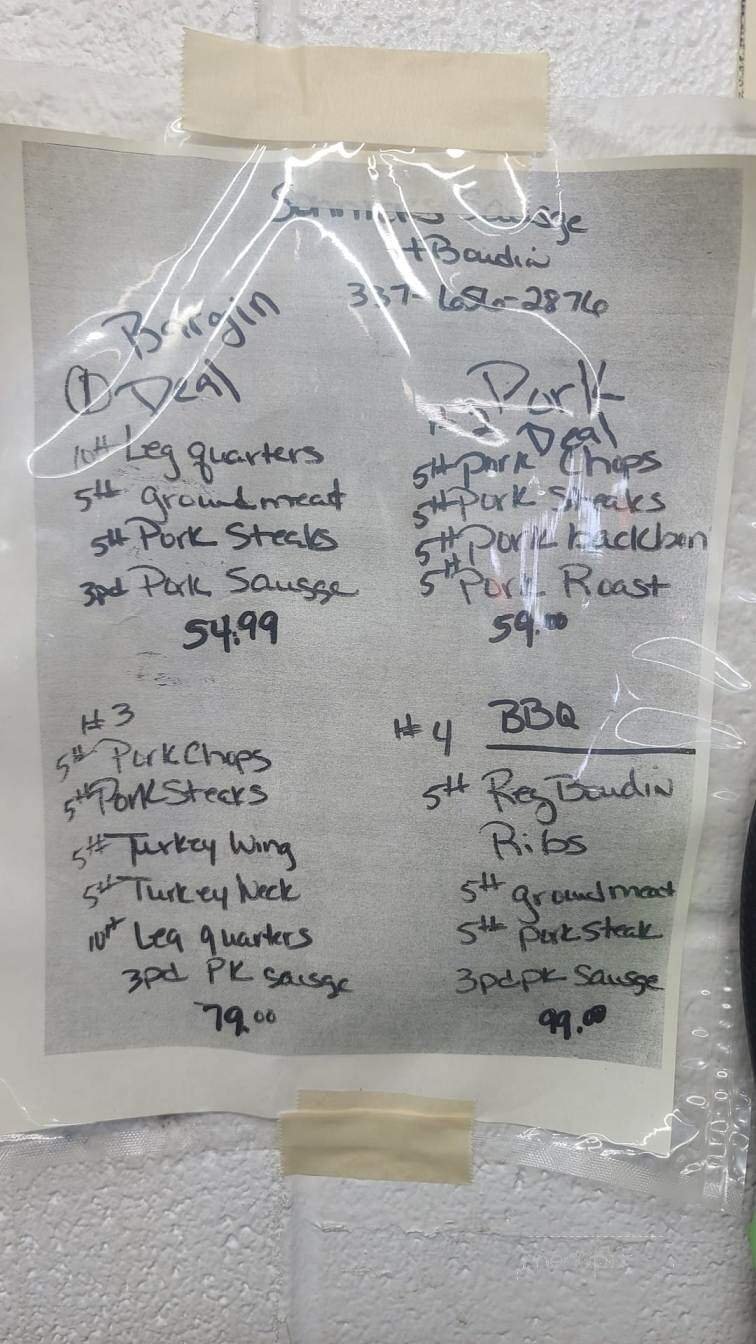 Sausge
+Boudin
337-656-2876
Bargin
① Deal
10# Leg quarters
5# groundmeat
5# Pork Steaks
3pd Pork Sausge
54.99
Pork
# 2 Deal
5# Pork Chops
5# Pork Steaks
5# Pork backbon
5# Pork Roast
59.00
#3
5# Pork Chops
5# Pork Steaks
5# Turkey Wing
5# Turkey Neck
10# Leg quarters
3pd PK sausge
79.00
#4 BBQ
5# Reg Boudin
Ribs
5# groundmeat
5# pork Steak
3pd pk Sausge
99.00